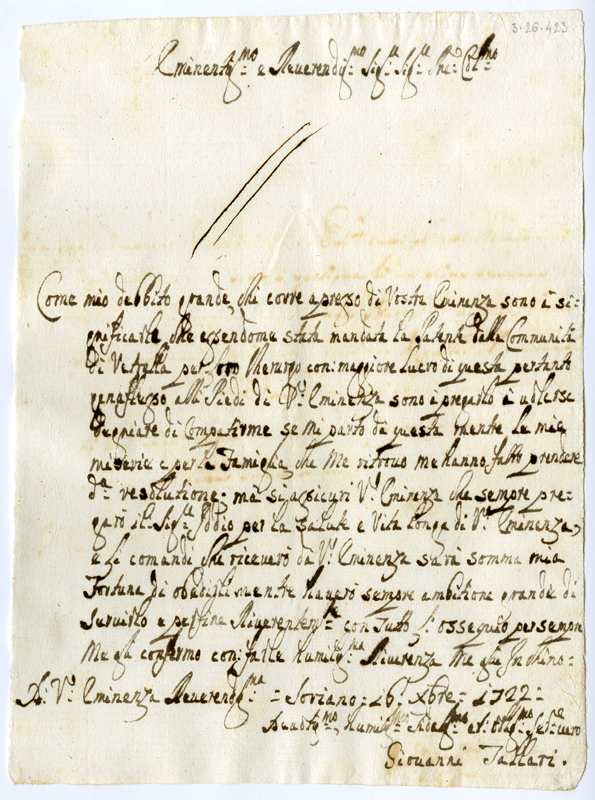 3-26-423
Eminentis.mo e Reverendis.mo Sig.re Sig.re Pne: Col.mo
Come mio debbito grande, chi corre apresso di Vostra Eminenza sono à si=
gnificarle, che essendome stata mandata la Patente dalla Communità
di Vetralla per loro Cherurgo con: maggiore lucro di questa pertanto
genaflesso alli Piedi di V.a Eminenza sono à pregarlo à volerse
degniare di Compatirme se mi parto da questa mentre le mie
miserie e per la Famiglia, che me ritrovo me hanno fatto prendere
d.a resolutione; mà si assicuri V.a Eminenza che sempre pre=
garò il Sig.re Iddio per la salute e Vita longa di V.a Eminenza,
e li comandi che riceverò da V.a Eminenza sarà somma mia
Fortuna di obedirli mentre haverò sempre ambitione grande di
Servirlo e per fine Riverentem.te con Tutto l'ossequio per sempre
Me gli confermo con: farle humilis.ma Riverenza me gli Inchino=
Di V.a Eminenza Reverendis.ma = Soriano = 16: Xbre = 1722=
Devotis.mo, humilis.mo Fidelis.mo et: obblig.mo Ser.re vero
Giovanni Tallari.